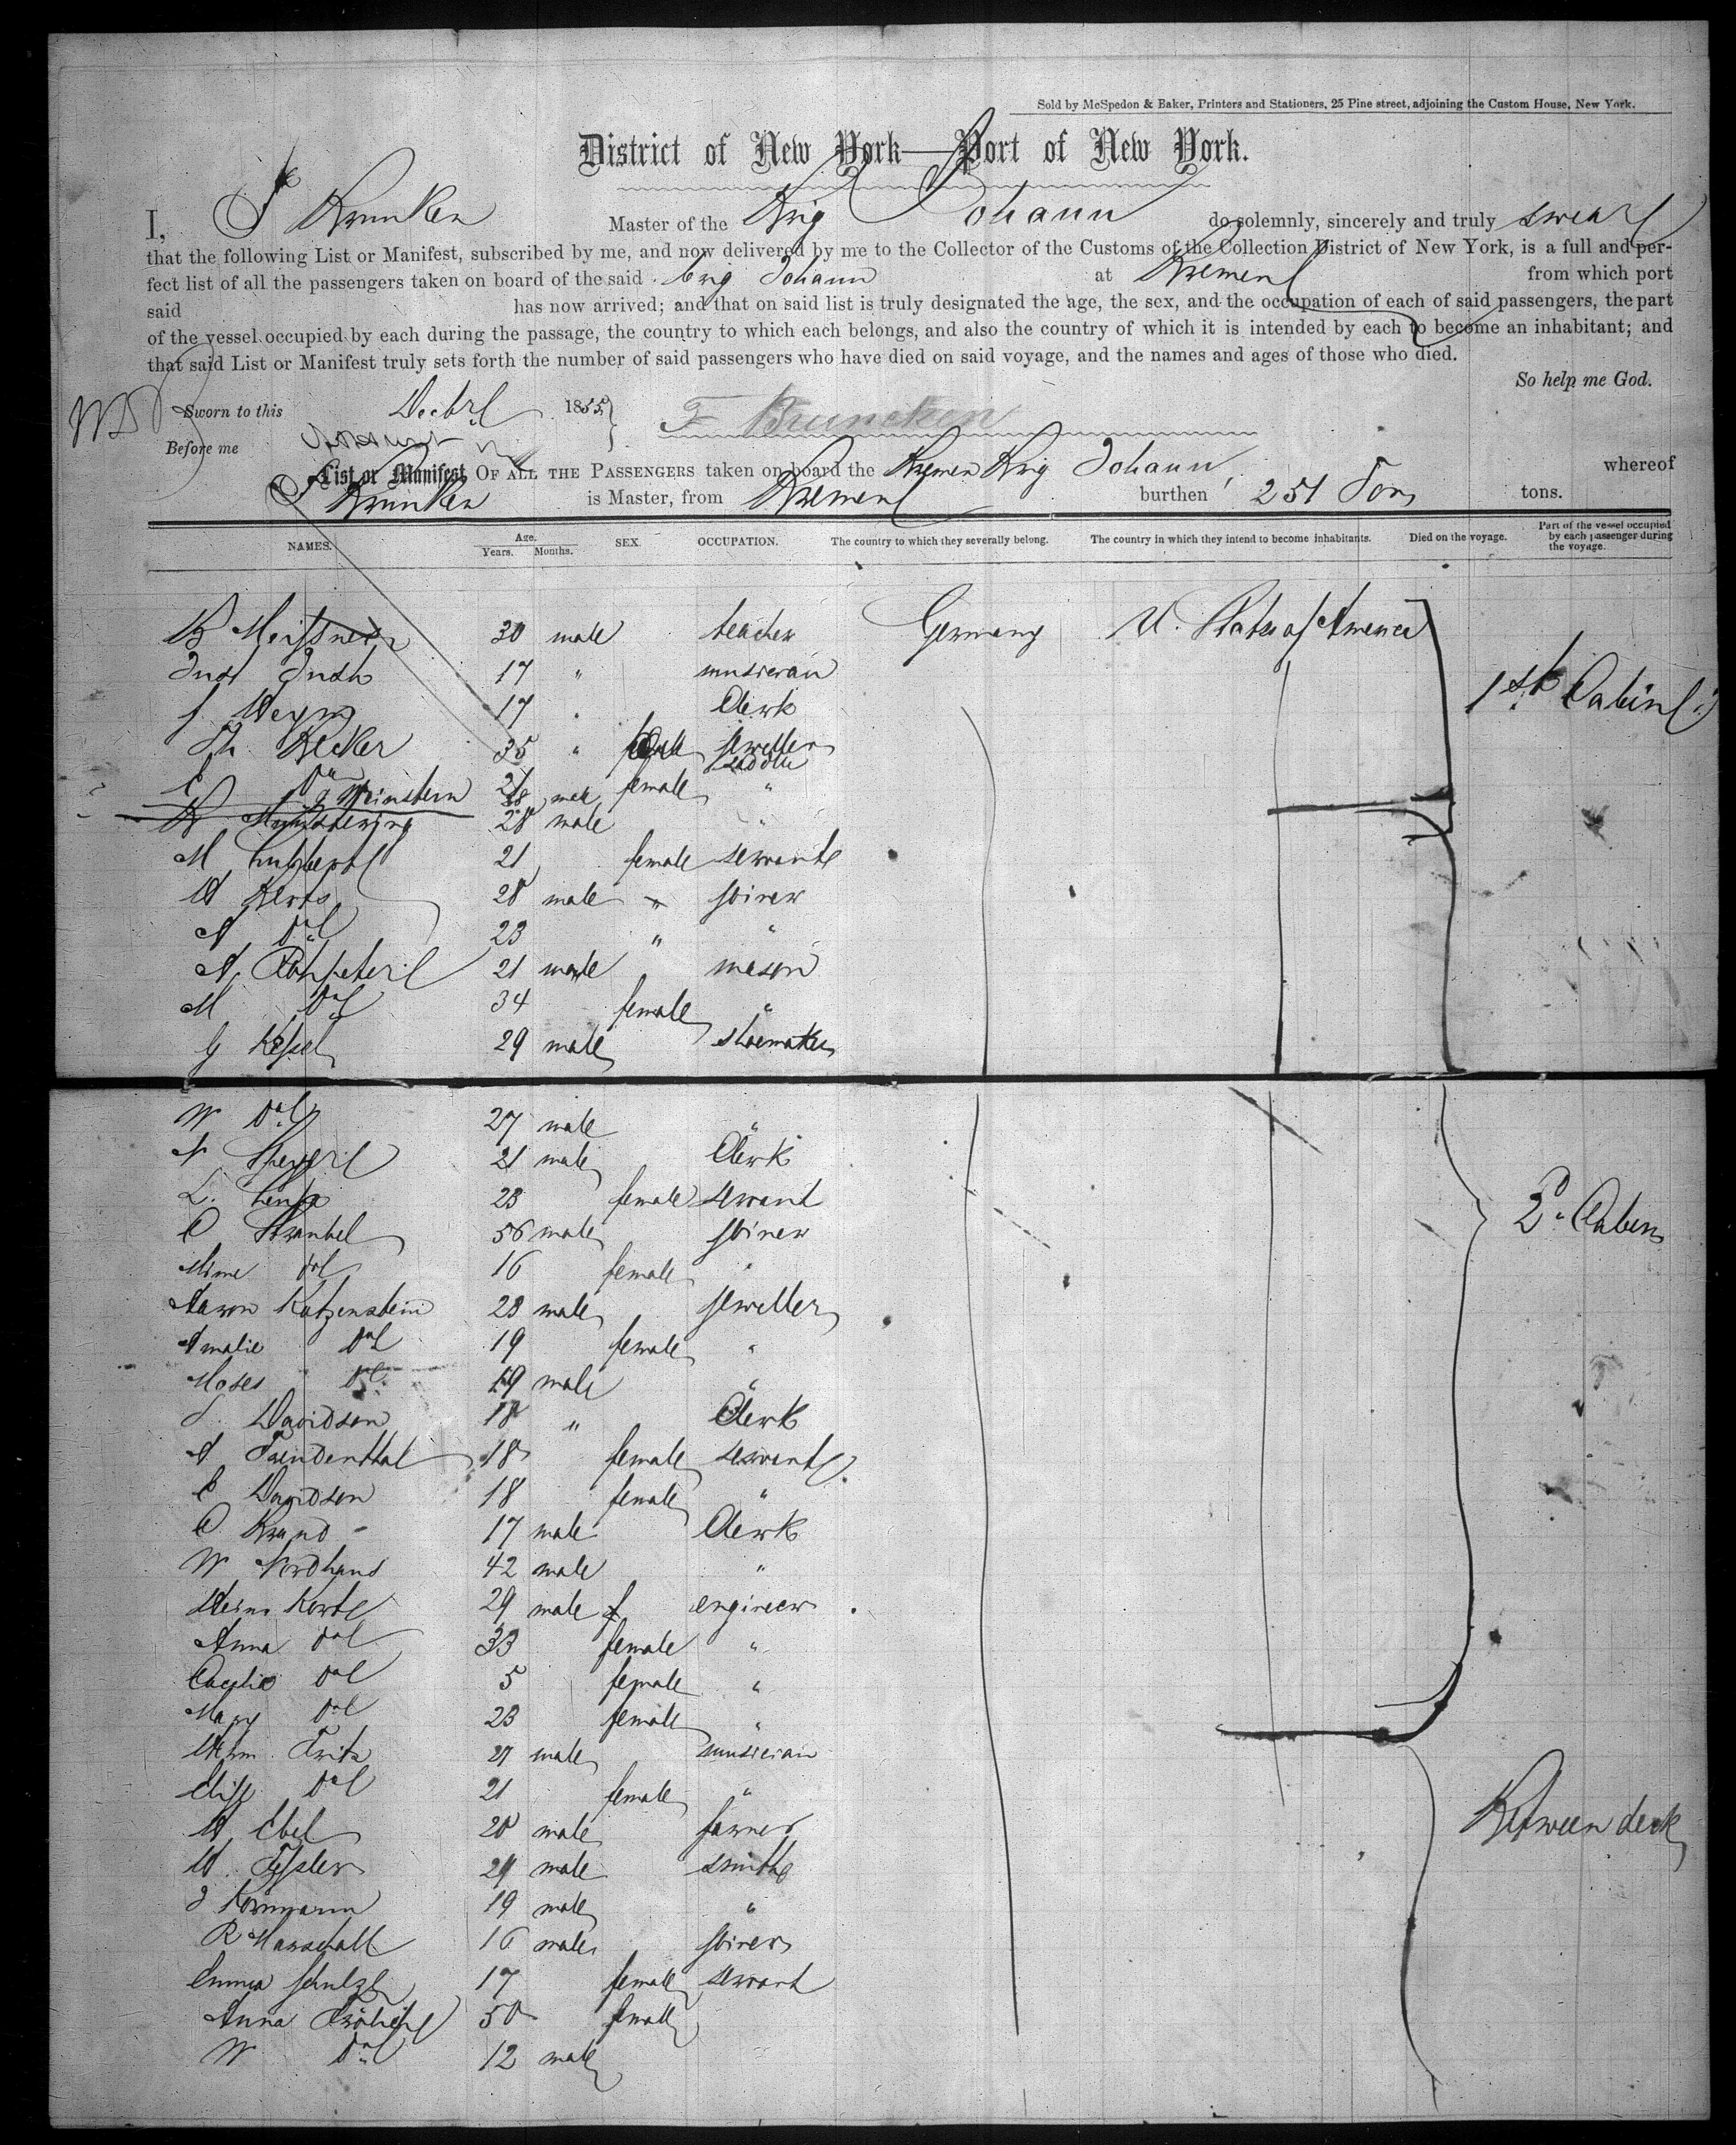 Sold by McSpedon & Baker, Printers and Stationers, 25 Pine street, adjoining the Custom House, New York.
District of New York—Port of New York.
I, Brunken Master of the Brig Johann do solemnly, sincerely and truly swear
that the following List or Manifest, subscribed by me, and now delivered by me to the Collector of the Customs of the Collection District of New York, is a full and per-
fect list of all the passengers taken on board of the said brig Johann at Bremen from which port
said has now arrived; and that on said list is truly designated the age, the sex, and the occupation of each of said passengers, the part
of the vessel occupied by each during the passage, the country to which each belongs, and also the country of which it is intended by each to become an inhabitant; and
that said List or Manifest truly sets forth the number of said passengers who have died on said voyage, and the names and ages of those who died.
So help me God.
Sworn to this Decbr 1855
F Bruncken
Before me
List or Manifest OF ALL THE PASSENGERS taken on board the Bremen Brig Johann whereof
Brunken is Master, from Bremen burthen 251 Tons tons.
NAMES. Age. Years. Months. SEX. OCCUPATION. The country to which they severally belong. The country in which they intend to become inhabitants. Died on the voyage. Part of the vessel occupied by each passenger during the voyage.
B Meissner 30 male teacher Germany U. States of America
17 " musician
17 " Clerk 1st Cabin
Th. Becker 35 " jeweller
C do 21 female "
Weinstern 28 male
28 male "
M 21 female servant
28 male " joiner
A do 23 " "
A. 21 male mason
M do 34 female "
G Kessel 29 male shoemaker
W do 27 male "
21 male Clerk
L. 23 female servant
C Strambel 56 male joiner 2d Cabin
Mime do 16 female "
Aaron Katzenstein 23 male jeweller
Amalie do 19 female "
Moses do 19 male "
S. Davidson 18 " Clerk
A 18 female servant
E Davidson 18 female "
C Brand 17 male Clerk
W Nordhaus 42 male "
Korte 29 male engineer
Anna do 33 female "
do 5 female "
Mary do 23 female "
Fritz 27 male musician
Elise do 21 female "
H Ebel 28 male farmer Between deck
H. Tessler 29 male smith
J Kornmann 19 male "
R Marschall 16 male joiner
Emma Schulze 17 female servant
Anna 50 female
W do 12 male